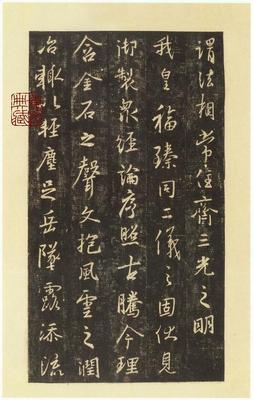 謂法相常住齊三光之明
我皇福臻同二儀之固伏見
御製衆經論序照古騰今理
含金石之聲文抱風雲之潤
治輒以輕塵足岳墜露添流